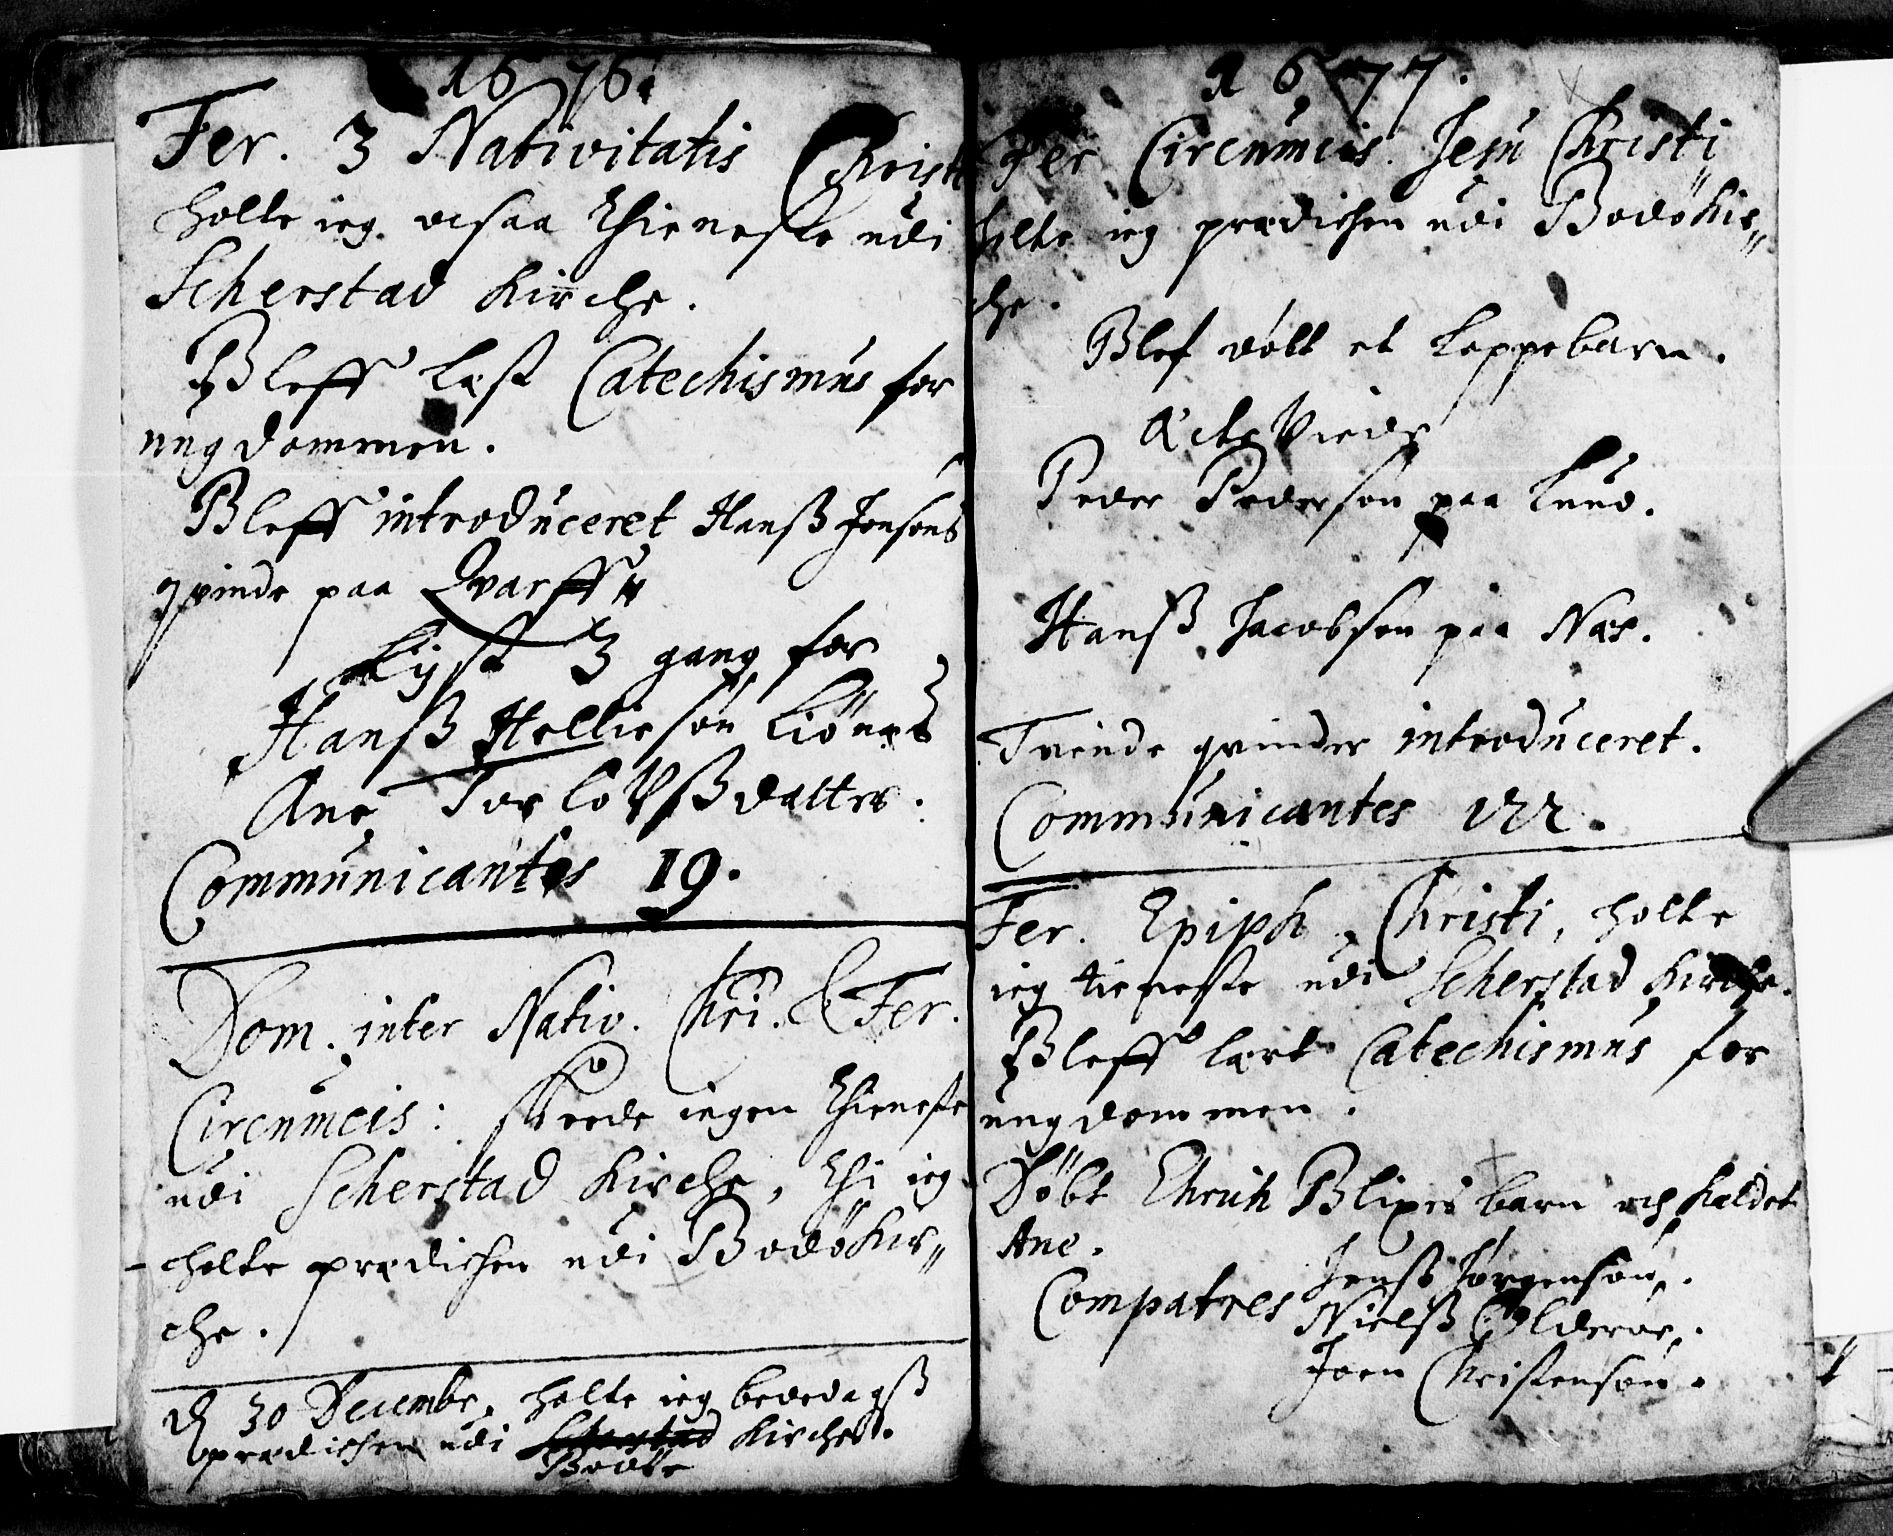 1676.
Fer. 3 Nativitatis Christi
holte ieg ocsaa thieneste udi
Scherstad Kirche.
Bleff læst Catechismus for
ungdommen.
Bleff introduceret Hanß Jensøns
qvinde paa Qvarff„
Lyst 3 gang for
Hanß Helliesøn
Ane Torlofßdatter.
Communicantes 19.
Dom. inter Nativ. Chri. & Fer.
Circumcis: skeede ingen thieneste
udi Scherstad Kirche, thi ieg
holte prædichen udi Bodø Kir„
che.
D 30 Decembr. holte ieg bededagß
prædichen udi Scherstad Kirche.
Bodøe
1677.
Fer Circumcis. Jesu Christi
holte ieg prædichen udi Bodø Kir„
che.
Blef døbt et Lappebarn.
Ægte Viede
Peder Pedersøn paa Lund.
Hanß Jacobsøn paa Næs.
Tvende qvinder introduceret.
Communicantes 122.
Fer. Epiph. Christi, holte
ieg tieneste udi Scherstad Kirche.
Bleff lært Catechismus for
ungdommen.
Døbt Ehrich Blixis barn och kaldet
Ane.
Compatres Jenß Jørgensøn.
Nielß
Joen Christensøn.